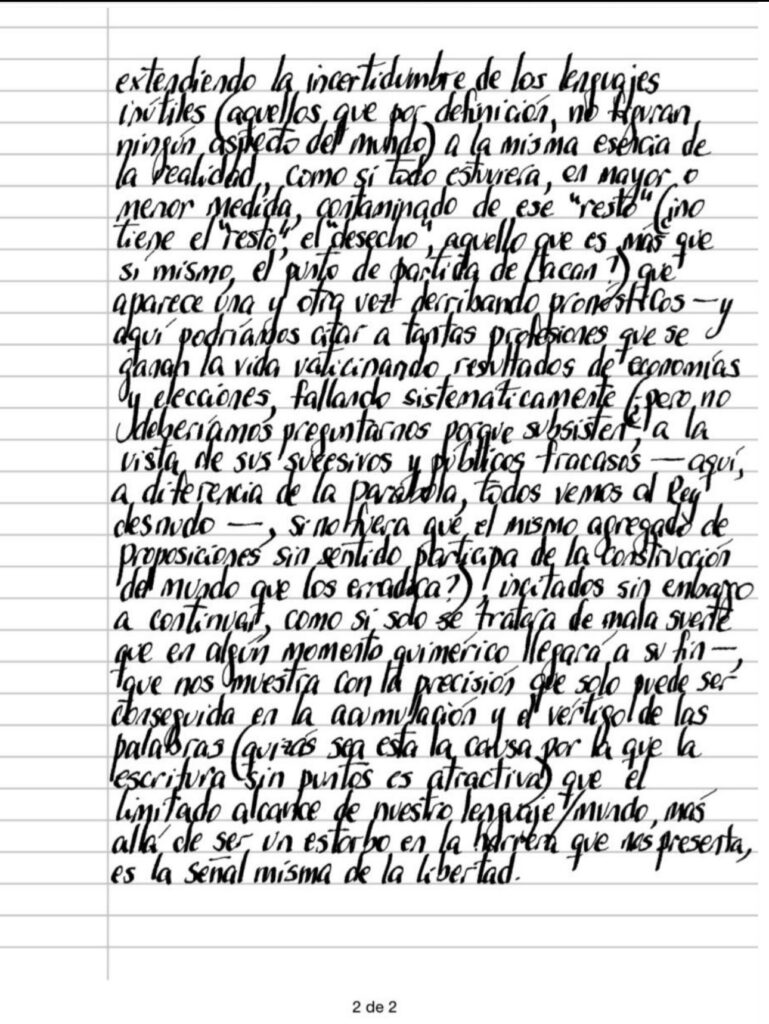 extendiendo la incertidumbre de los lenguajes
inútiles (aquellos que por definición, no figuran
ningún aspecto del mundo) a la misma esencia de
la realidad, como si todo estuviera, en mayor o
menor medida, contaminado de ese "resto" (¿no
tiene el "resto", el "desecho", aquello que es más que
sí mismo, el punto de partida de Lacan?) que
aparece una y otra vez derribando pronósticos —y
aquí podríamos citar a tantas profesiones que se
ganan la vida vaticinando resultados de economías
y elecciones, fallando sistematicamente (¿pero no
deberíamos preguntarnos porque subsisten, a la
vista de sus sucesivos y públicos fracasos — aquí,
a diferencia de la parábola, todos vemos al Rey
desnudo —, si no fuera que el mismo agregado de
proposiciones sin sentido participa de la construcción
del mundo que los erradica?), incitados sin embargo
a continuar, como si solo se tratara de mala suerte
que en algún momento quimérico llegará a su fin —,
que nos muestra con la precisión que solo puede ser
conseguida en la acumulación y el vértigo de las
palabras (quizás sea esta la causa por la que la
escritura sin puntos es atractiva) que el
limitado alcance de nuestro lenguaje/mundo, más
allá de ser un estorbo en la barrera que nos presenta,
es la señal misma de la libertad.
2 de 2